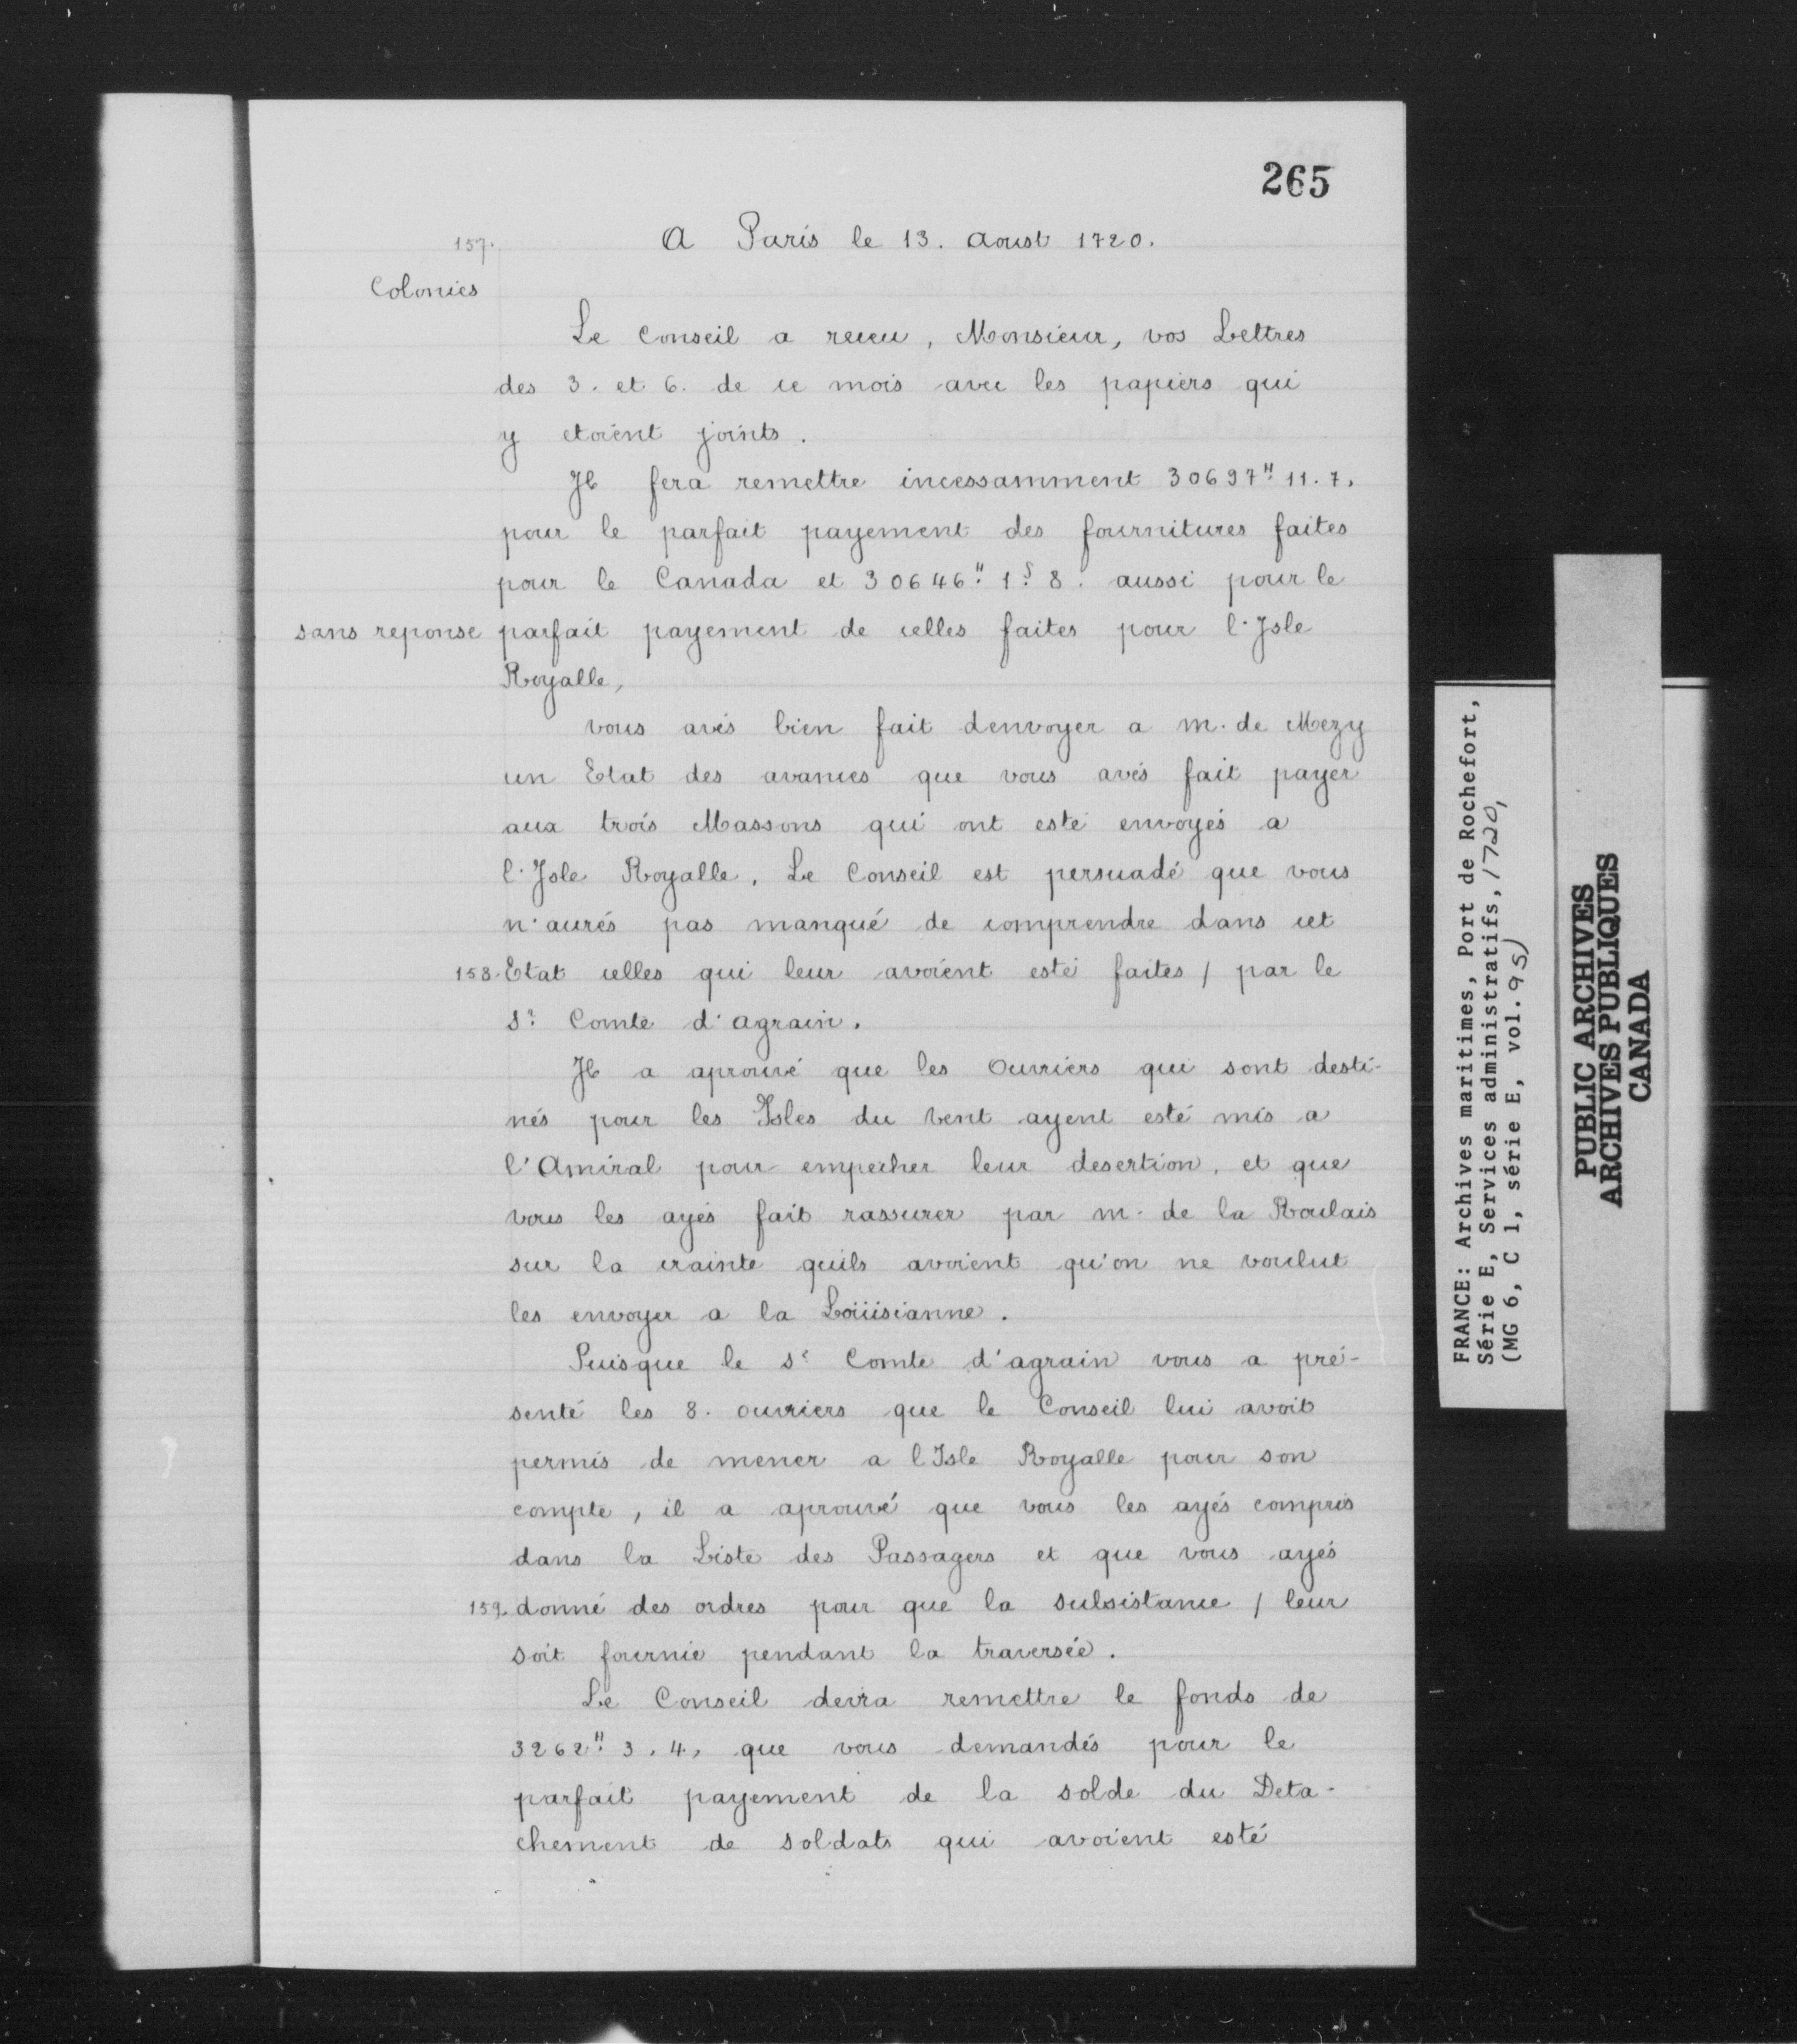 265
157.
A Paris le 13. Aoust 1720.
Colonies
Le Conseil a receu, Monsieur, vos Lettres
des 3. et 6. de ce mois avec les papiers qui
y etoient joints.
Il fera remettre incessamment 30697ᴴ 11. 7.
pour le parfait payement des fournitures faites
pour le Canada et 30646ᴴ 1ˢ 8. aussi pour le
sans reponse parfait payement de celles faites pour l'Isle
Royalle,
vous avés bien fait denvoyer a m. de Mezy
un Etat des avances que vous avés fait payer
aux trois Massons qui ont esté envoyés a
l'Isle Royalle. Le Conseil est persuadé que vous
n'aurés pas manqué de comprendre dans cet
158. Etat celles qui leur avoient esté faites / par le
Sr. Comte d'agrain.
Il a aprouvé que les Ouvriers qui sont desti-
nés pour les Isles du Vent ayent esté mis a
l'Amiral pour empecher leur desertion, et que
vous les ayés fait rassurer par m. de la Roulais
sur la crainte quils avoient qu'on ne voulut
les envoyer a la Loüisianne.
Puisque le Sr. Comte d'agrain vous a pré-
senté les 8. ouvriers que le Conseil lui avoit
permis de mener a l Isle Royalle pour son
compte, il a aprouvé que vous les ayés compris
dans la Liste des Passagers et que vous ayés
159. donné des ordres pour que la subsistance / leur
soit fournie pendant la traversée.
Le Conseil devra remettre le fonds de
3262ᴴ 3. 4, que vous demandés pour le
parfait payement de la solde du Deta-
chement de soldats qui avoient esté
FRANCE: Archives maritimes, Port de Rochefort,
Série E, Services administratifs, 1720,
(MG 6, C 1, série E, vol. 95)
PUBLIC ARCHIVES
ARCHIVES PUBLIQUES
CANADA